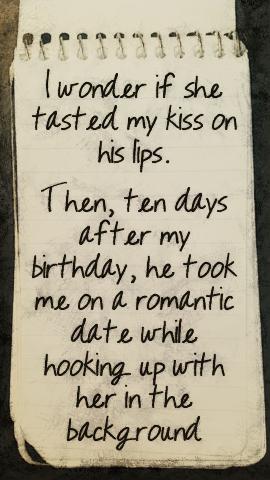 I wonder if she
tasted my kiss on
his lips.
Then, ten days
after my
birthday, he took
me on a romantic
date while
hooking up with
her in the
background